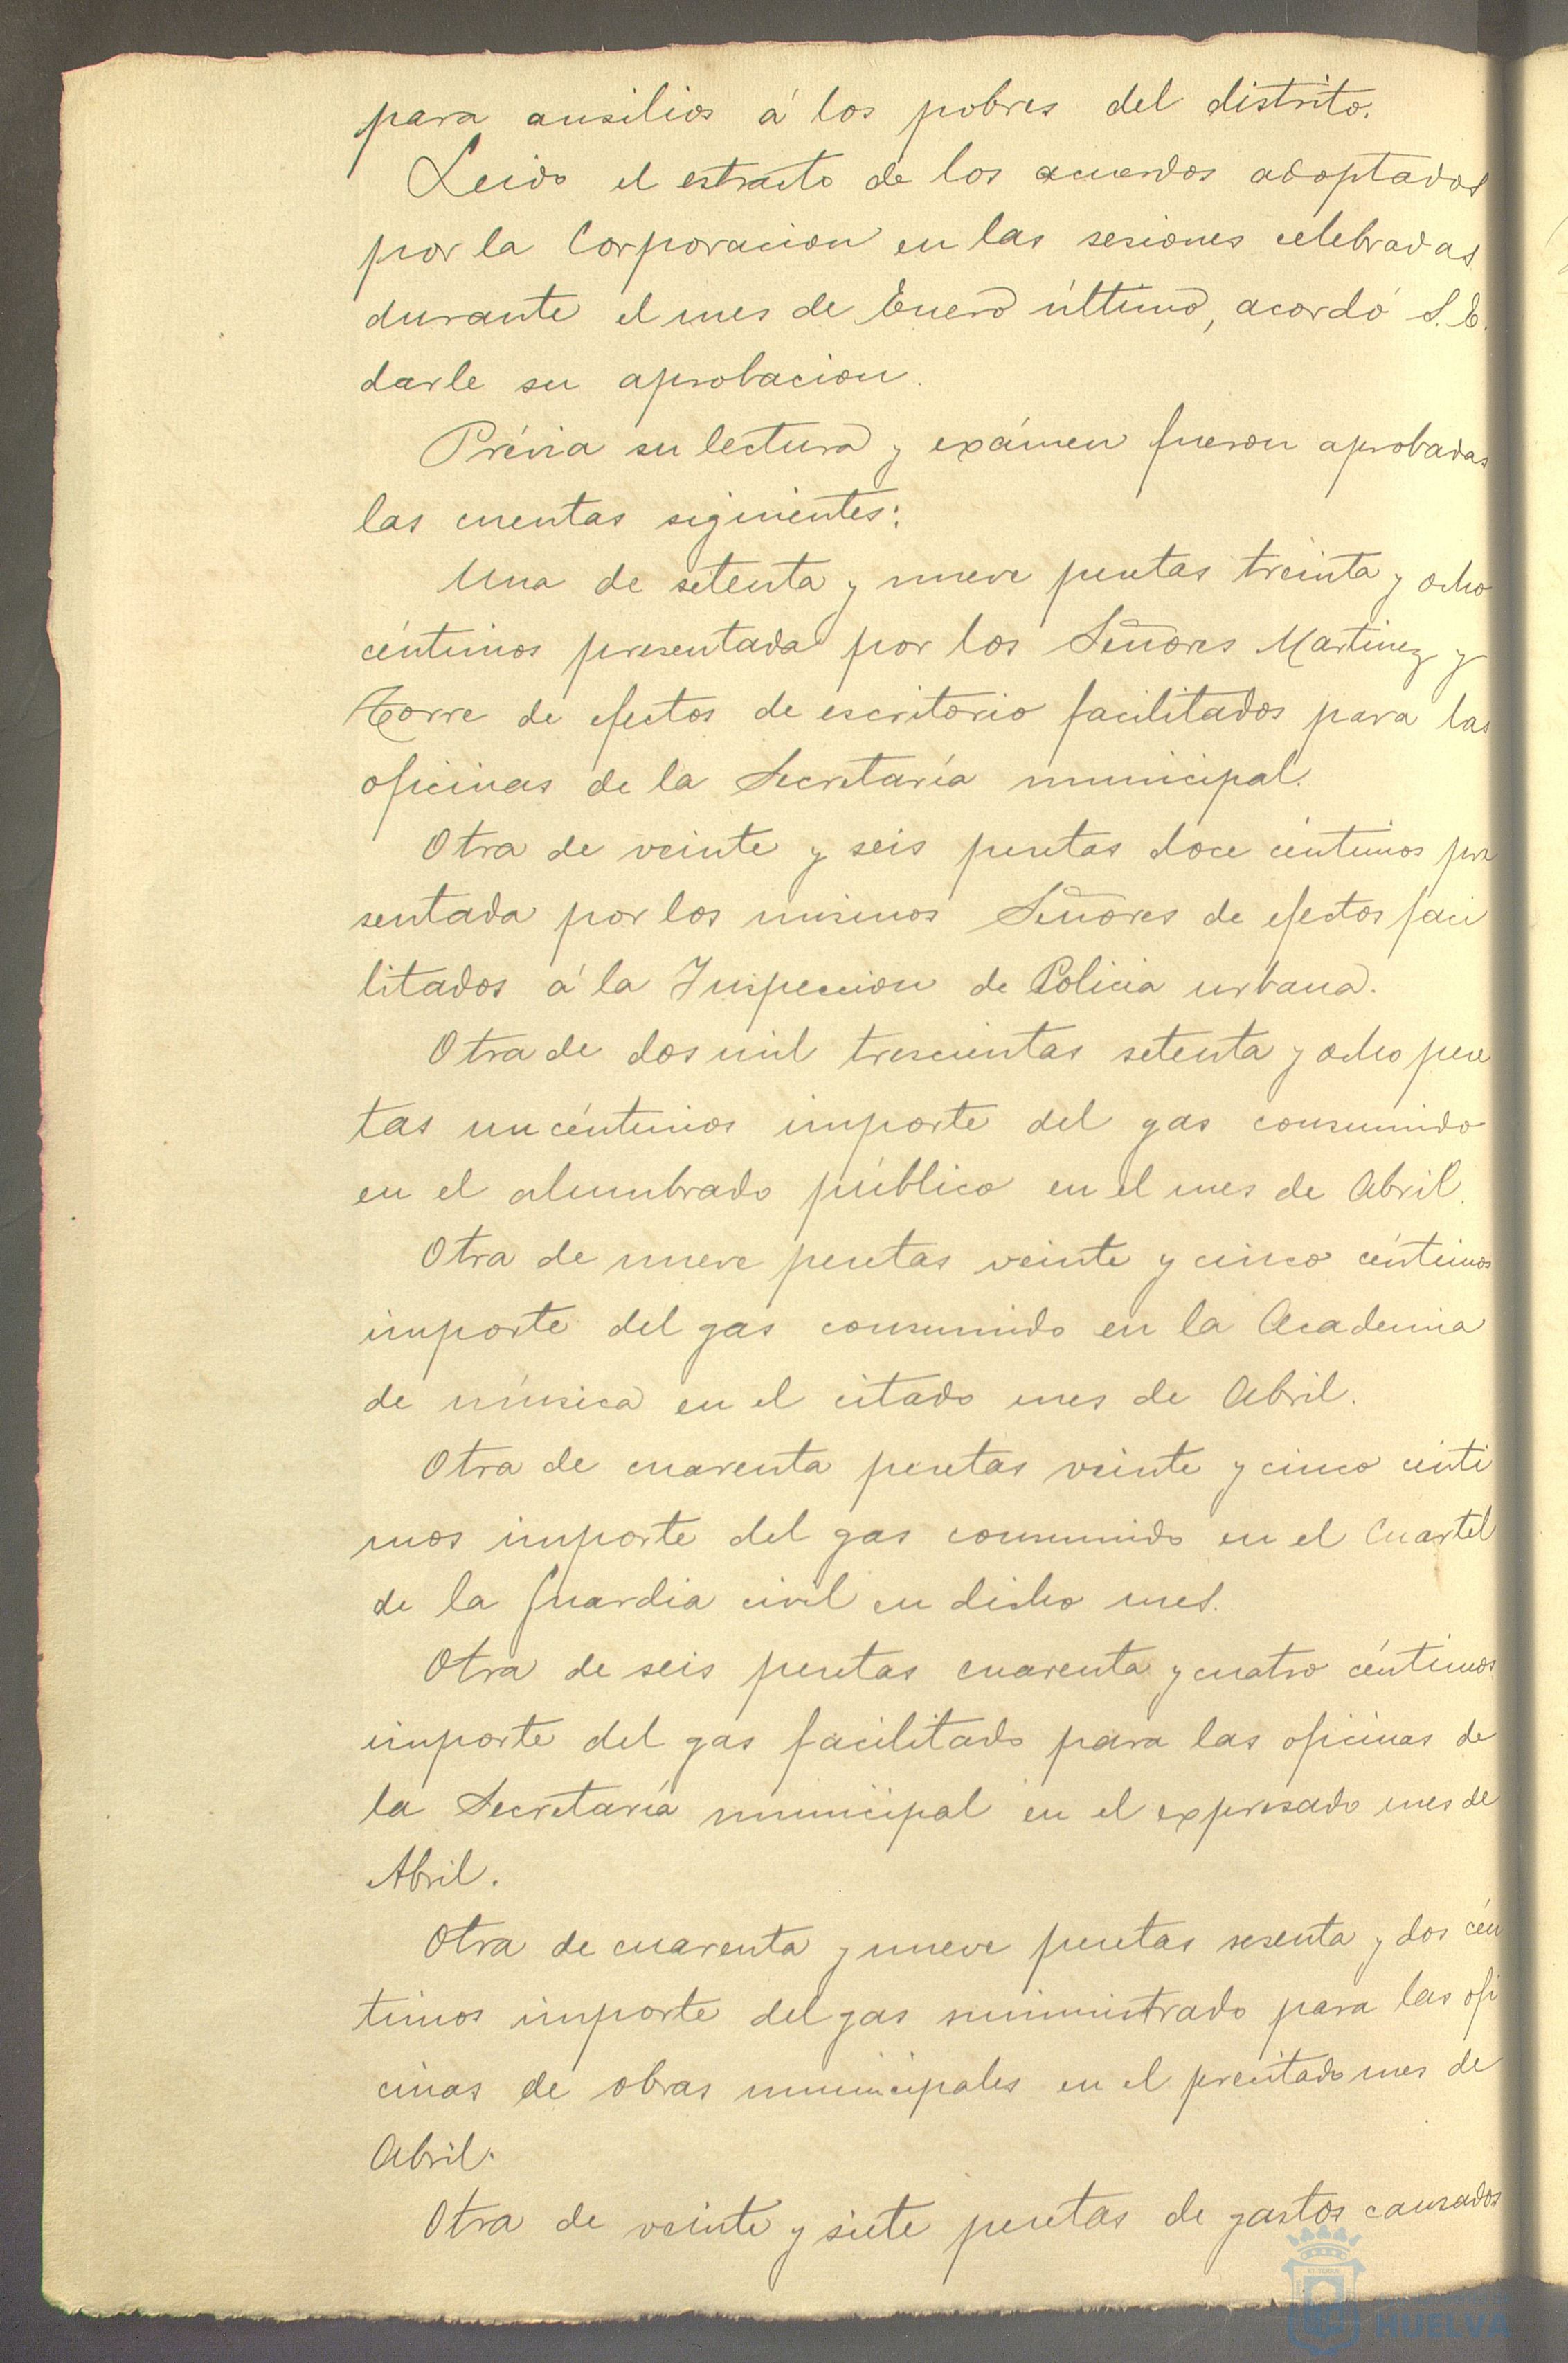 para ausilios á los pobres del distrito.
Leido el estracto de los acuerdos adoptados
por la Corporacion en las sesiones celebradas
durante el mes de Enero último, acordó S. E.
darle su aprobacion.
Prévia su lectura y exámen fueron aprobadas
las cuentas siguientes:
Una de setenta y nueve pesetas treinta y ocho
céntimos presentada por los Señores Martinez y
Torre de efectos de escritorio facilitados para las
oficinas de la Secretaría municipal.
Otra de veinte y seis pesetas doce céntimos pre
sentada por los mismos Señores de efectos faci
litados á la Inspeccion de Policia urbana.
Otra de dos mil trescientas setenta y ocho pese
tas un céntimos importe del gas consumido
en el alumbrado público en el mes de Abril.
Otra de nueve pesetas veinte y cinco céntimos
importe del gas consumido en la Academia
de música en el citado mes de Abril.
Otra de cuarenta pesetas veinte y cinco cénti
mos importe del gas consumido en el Cuartel
de la Guardia civil en dicho mes.
Otra de seis pesetas cuarenta y cuatro céntimos
importe del gas facilitado para las oficinas de
la Secretaría municipal en el expresado mes de
Abril.
Otra de cuarenta y nueve pesetas sesenta y dos cén
timos importe del gas suministrado para las ofi
cinas de obras municipales en el precitado mes de
Abril.
Otra de veinte y siete pesetas de gastos causados
HUELVA